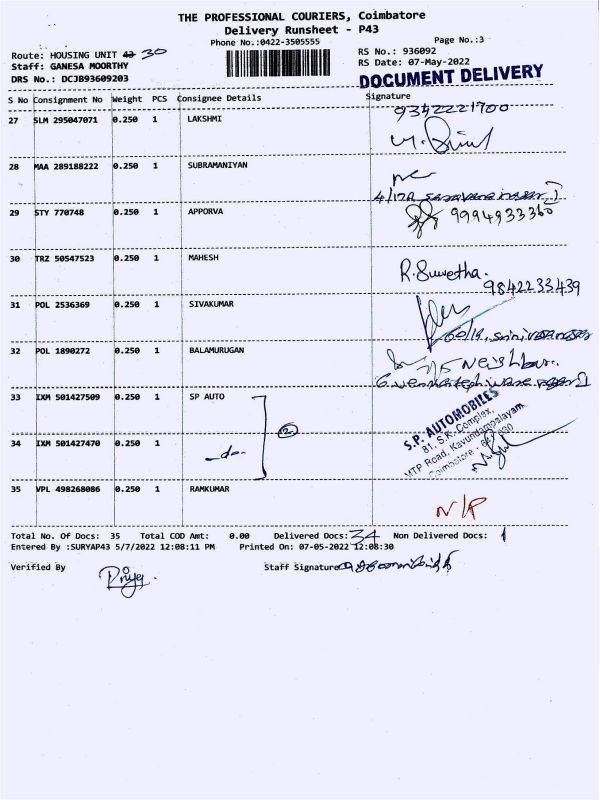 THE PROFESSIONAL COURIERS, Coimbatore
Delivery Runsheet - P43
Phone No.:0422-3505555
Page No.:3
Route: HOUSING UNIT 43 30
RS No.: 936092
Staff: GANESA MOORTHY
RS Date: 07-May-2022
DRS No.: DCJB93609203
DOCUMENT DELIVERY
S No Consignment No Weight PCS Consignee Details Signature
27 SLM 295047071 0.250 1 LAKSHMI 9342221700
28 MAA 289188222 0.250 1 SUBRAMANIYAN
29 STY 770748 0.250 1 APPORVA 9994933360
30 TRZ 50547523 0.250 1 MAHESH R.Suwetha. 9842233439
31 POL 2536369 0.250 1 SIVAKUMAR
32 POL 1890272 0.250 1 BALAMURUGAN Neighbour.
33 IXM 501427509 0.250 1 SP AUTO
34 IXM 501427470 0.250 1 -do- 2
S.P. AUTOMOBILES
81, S.K. Complex,
MTP Road, Kavundampalayam
Coimbatore
35 VPL 498268086 0.250 1 RAMKUMAR N/P
Total No. Of Docs: 35 Total COD Amt: 0.00 Delivered Docs: 34 Non Delivered Docs: 1
Entered By :SURYAP43 5/7/2022 12:08:11 PM Printed On: 07-05-2022 12:08:30
Verified By Priya. Staff Signature